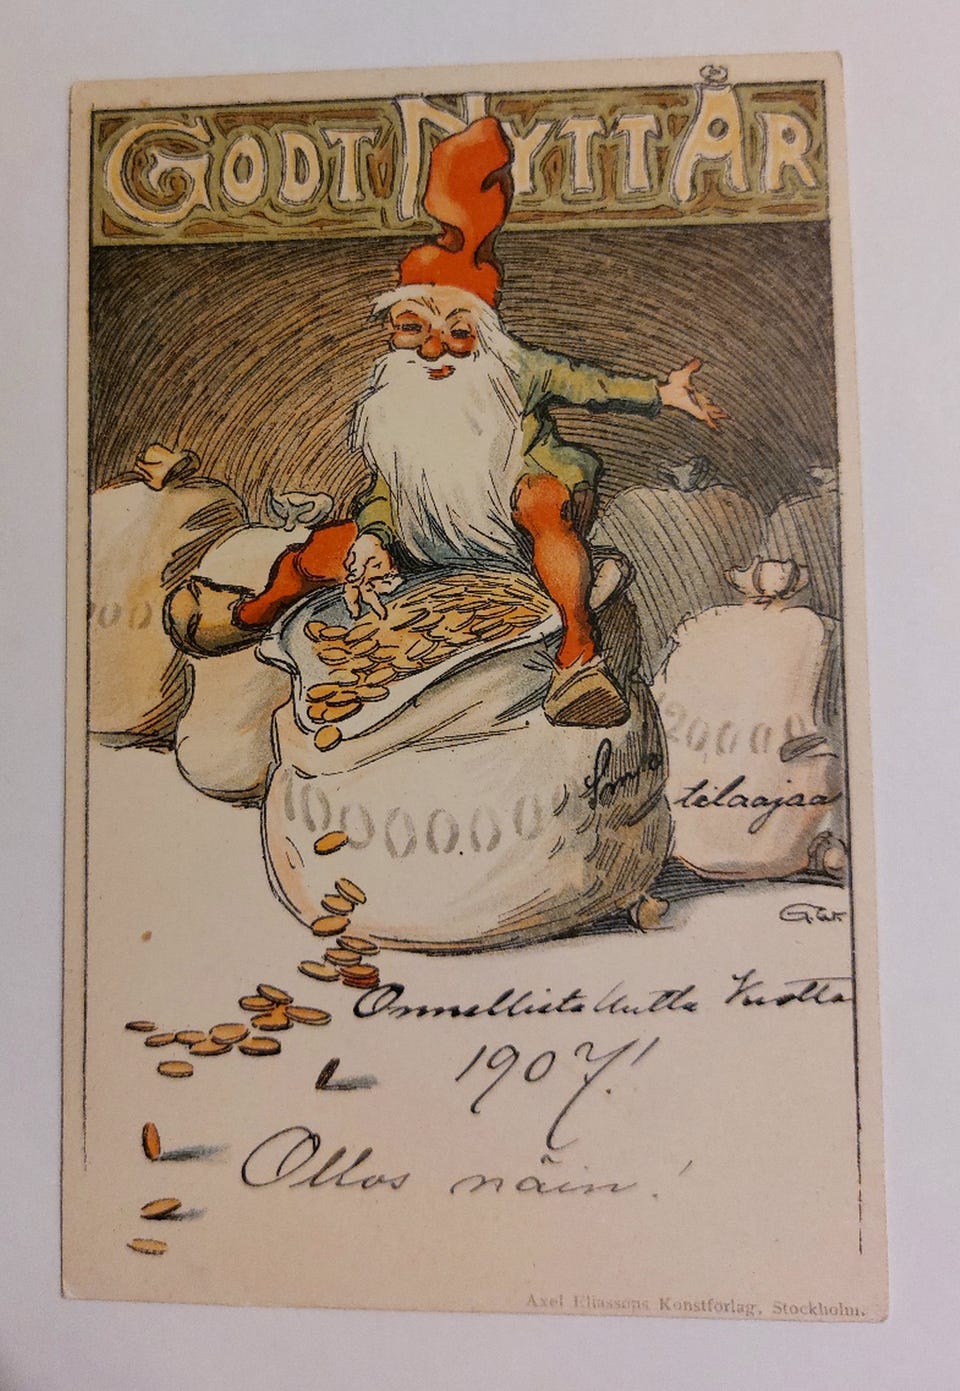 GODT NYTT ÅR
000
20,000
1000000
tilaajaa
G.W.
Onnellista Uutta Vuotta
1907!
Ollos näin!
Axel Eliassons Konstförlag, Stockholm.